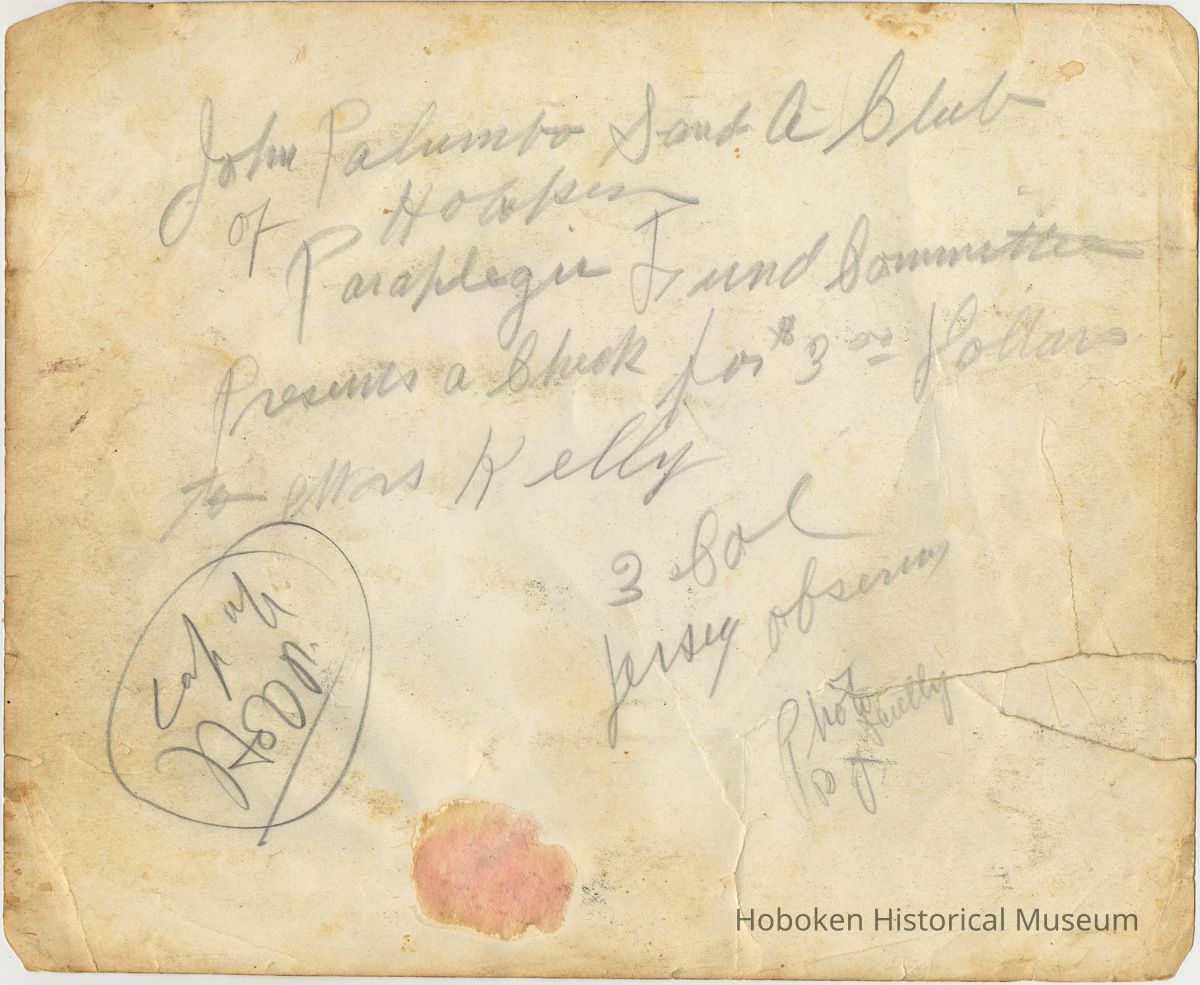 John Palumbo S and A Club
of Hoboken
Paraplegic Fund Committee
Presents a Check for $3 00 Dollars
to Mrs Kelly
3 Col
Jersey Observer
Photo
by J
Hob
Hoboken Historical Museum